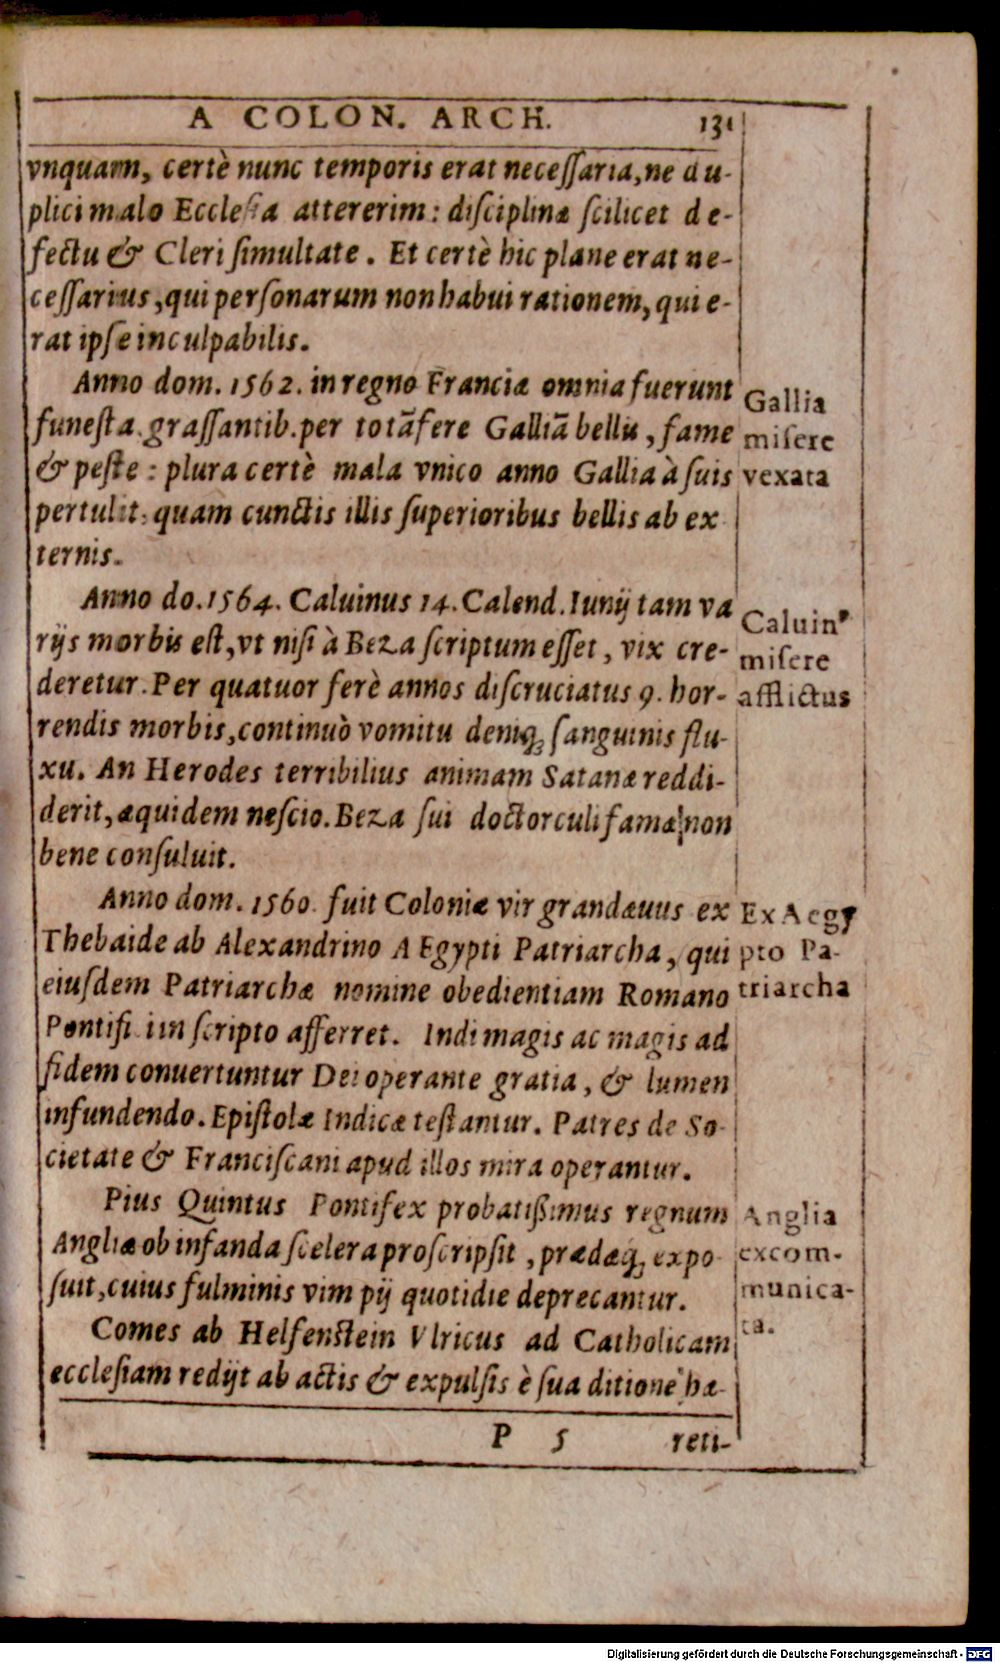 A COLON. ARCH. 131
vnquam, certè nunc temporis erat neceſſaria, ne du-
plici malo Eccleſia attererim: diſciplinæ ſcilicet de-
fectu & Cleri ſimultate. Et certè hic plane erat ne-
ceſſarius, qui perſonarum non habui rationem, qui e-
rat ipſe inculpabilis.
Anno dom. 1562. in regno Franciæ omnia fuerunt
funeſta. graſſantib. per totã fere Galliã bellis, fame
& peſte: plura certè mala vnico anno Gallia à ſuis
pertulit, quam cunctis illis ſuperioribus bellis ab ex
ternis.
Gallia
miſere
vexata
Anno do. 1564. Caluinus 14. Calend. Iunij tam va
rijs morbis eſt, vt niſi à Beza ſcriptum eſſet, vix cre-
deretur. Per quatuor ferè annos diſcruciatus 9. hor-
rendis morbis, continuò vomitu deniq; ſanguinis flu-
xu. An Herodes terribilius animam Satanæ reddi-
derit, æquidem neſcio. Beza ſui doctorculi famæ non
bene conſuluit.
Caluinꝰ
miſere
afflictus
Anno dom. 1560. fuit Coloniæ vir grandæuus ex
Thebaide ab Alexandrino AEgypti Patriarcha, qui
eiuſdem Patriarchæ nomine obedientiam Romano
Pontifi im ſcripto afferret. Indi magis ac magis ad
fidem conuertuntur Dei operante gratia, & lumen
infundendo. Epiſtolæ Indicæ teſtantur. Patres de So-
cietate & Franciſcani apud illos mira operantur.
Ex Aegy
pto Pa-
triarcha
Pius Quintus Pontifex probatißimus regnum
Angliæ ob infanda ſcelera proſcripſit, prædæq; expo-
ſuit, cuius fulminis vim pij quotidie deprecantur.
Anglia
excom-
munica-
ta.
Comes ab Helfenſtein Vlricus ad Catholicam
eccleſiam redijt ab actis & expulſis è ſua ditione hæ-
P 5 reti-
Digitalisierung gefördert durch die Deutsche Forschungsgemeinschaft - DFG